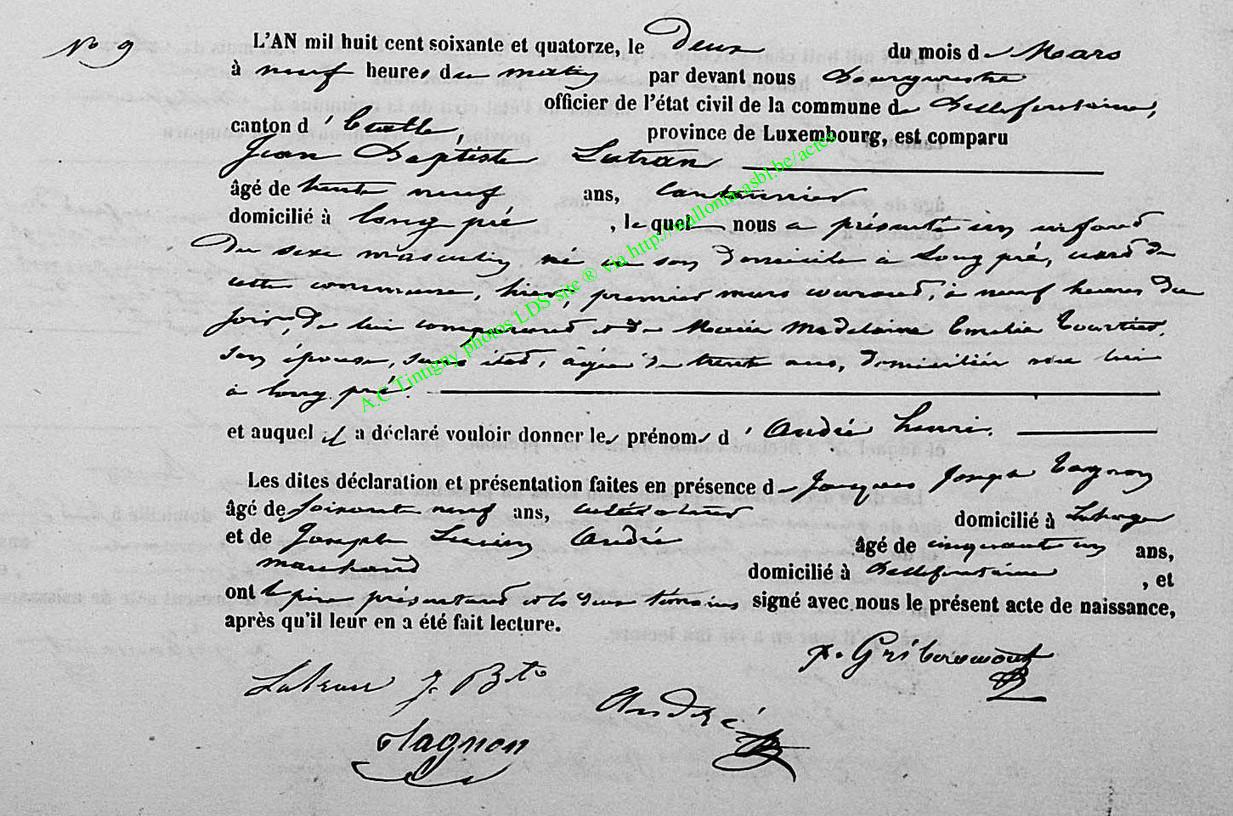 No 9
L'AN mil huit cent soixante et quatorze, le deux du mois de Mars
à neuf heures du matin par devant nous Bourgmestre
officier de l'état civil de la commune de Bellefontaine,
canton d'Etalle, province de Luxembourg, est comparu
Jean Baptiste Lutran
âgé de trente neuf ans, cantonnier
domicilié à Long pré, lequel nous a présenté un enfant
du sexe masculin, né en son domicile à Long pré, de
cette commune, hier, premier mars courant, à neuf heures du
soir, de lui comparant et de Marie Madelaine Emelie
son épouse, sans état, âgée de trente ans, domiciliée avec lui
à long pré.
et auquel il a déclaré vouloir donner les prénoms d'André henri.
Les dites déclaration et présentation faites en présence de Jacques Joseph Tagnon
âgé de soixante neuf ans, cultivateur domicilié à
et de Joseph Lucien André âgé de cinquante un ans,
marchand domicilié à Bellefontaine, et
ont le père présentant et les deux témoins signé avec nous le présent acte de naissance,
après qu'il leur en a été fait lecture.
Lutran J. Bte
Tagnon
André
A.C Tintigny photos LDS site ® via http://wallonia-asbl.be/actes